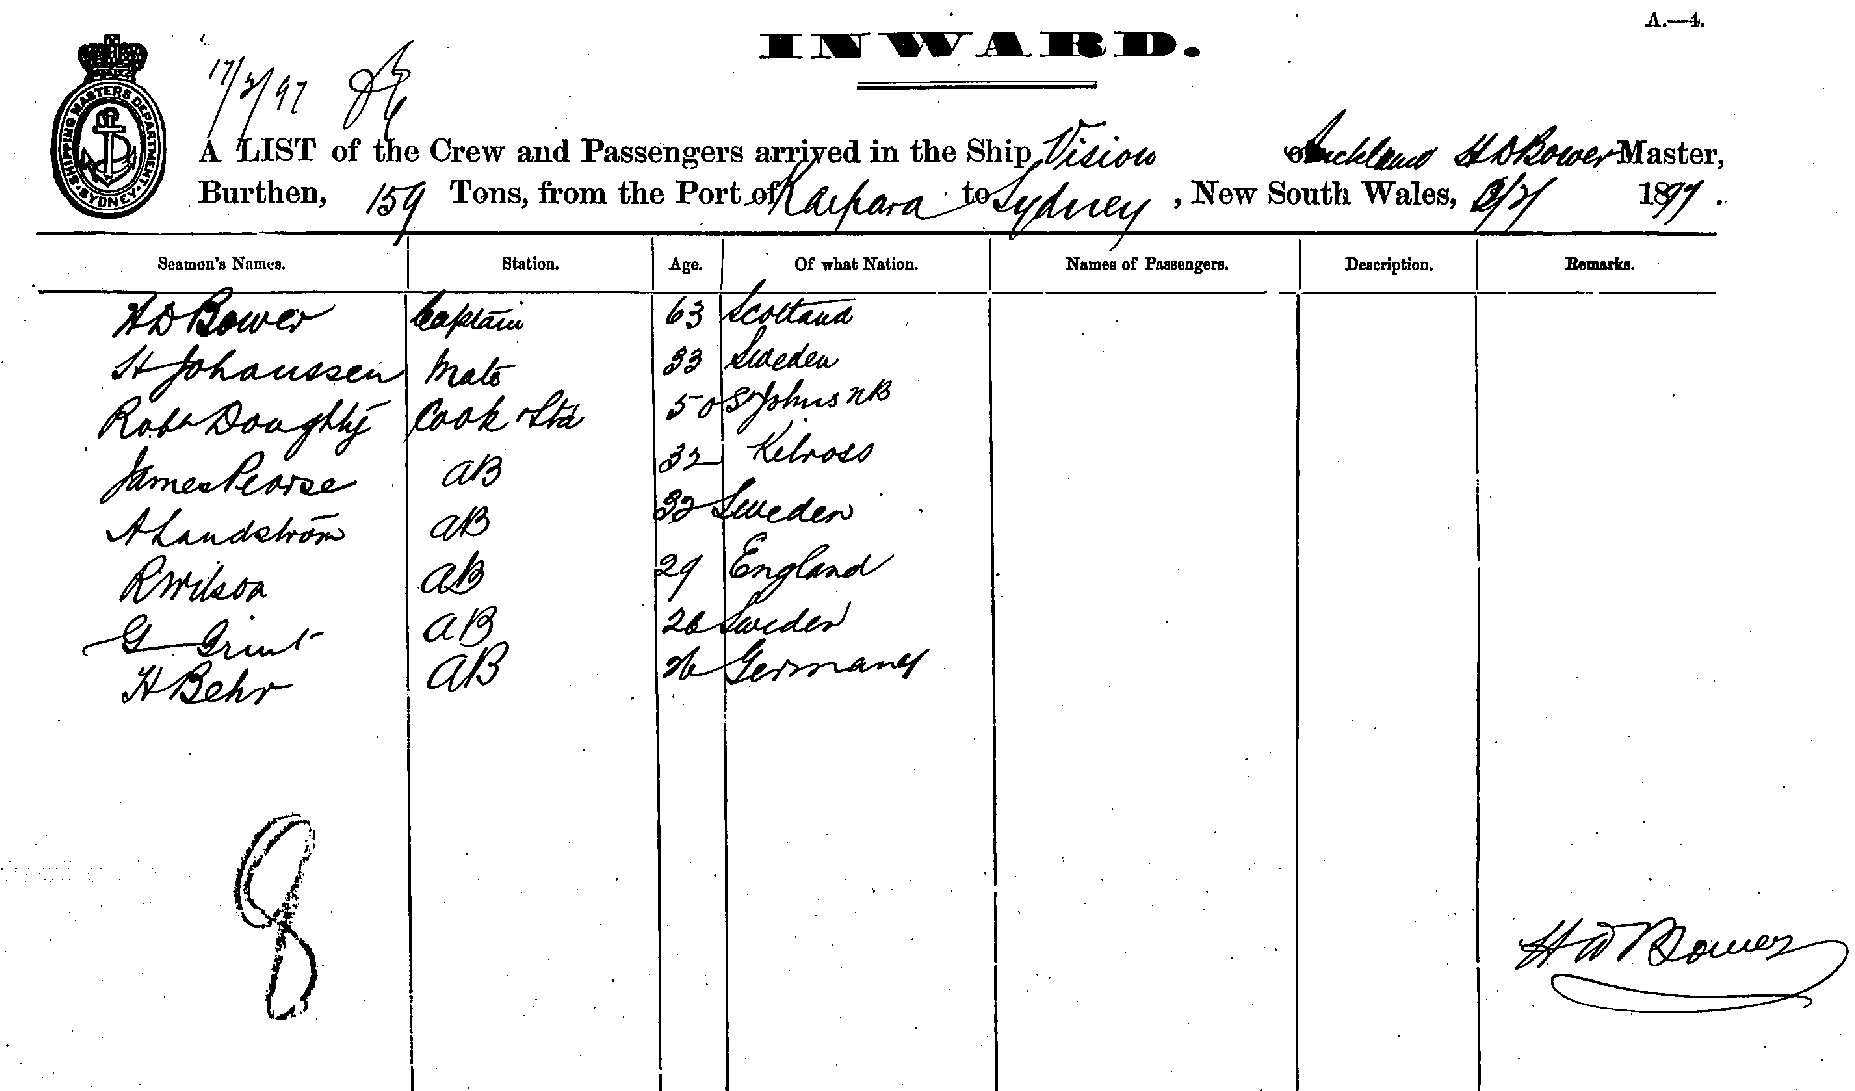 A.—4.
INWARD.
SHIPPING MASTERS DEPARTMENT SYDNEY
17/2/97
A LIST of the Crew and Passengers arrived in the Ship Vision of Auckland H D Bower Master,
Burthen, 159 Tons, from the Port of Kaipara to Sydney, New South Wales, 1897.
Seamen's Names. Station. Age. Of what Nation. Names of Passengers. Description. Remarks.
H D Bower Captain 63 Scotland
H Johanssen Mate 33 Sweden
Robt Doughty Cook & Std 50 St Johns NB
James Pearse AB 32 Kilross
A Landström AB 32 Sweden
R Wilson AB 29 England
G Grint AB 26 Sweden
H Behr AB 26 Germany
8
H D Bower